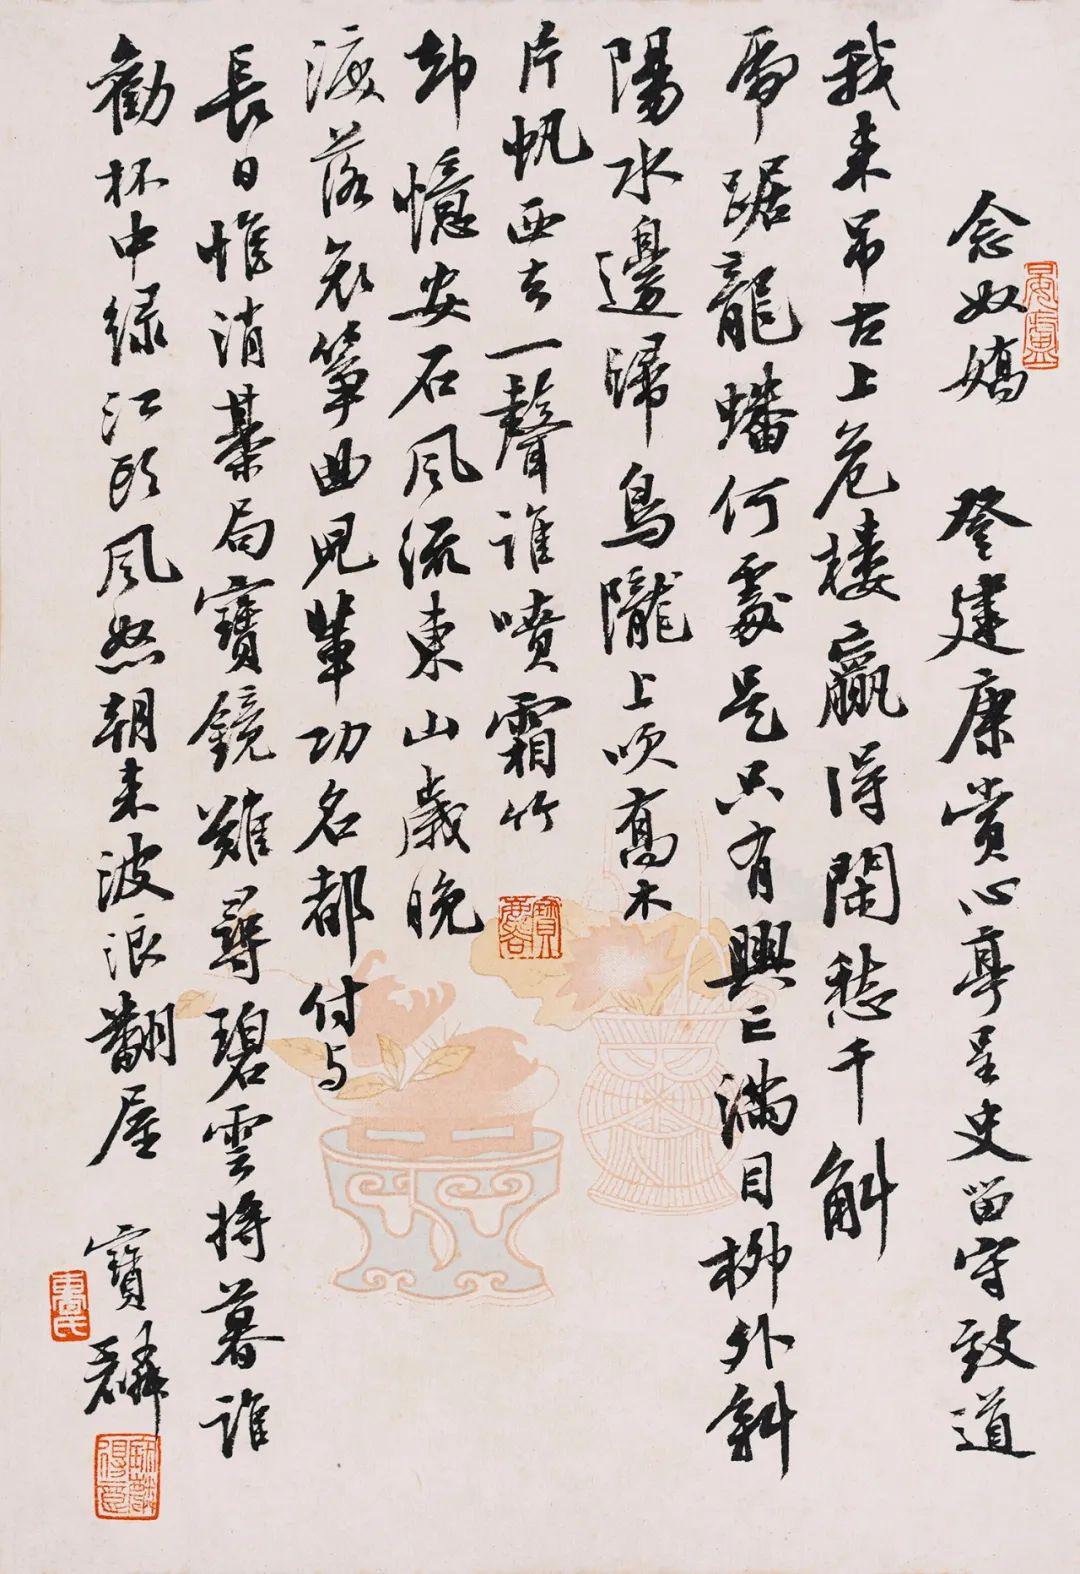 念奴嬌 登建康賞心亭呈史留守致道
我來吊古上危樓贏得閑愁千斛
虎踞龍蟠何處是只有興亡滿目柳外斜
陽水邊歸鳥隴上吹喬木
片帆西去一聲誰噴霜竹
却憶安石風流東山歲晚
淚落哀箏曲兒輩功名都付與
長日惟消棊局寶鏡難尋碧雲將暮誰
勸杯中綠江頭風怒朝來波浪翻屋
寶麟